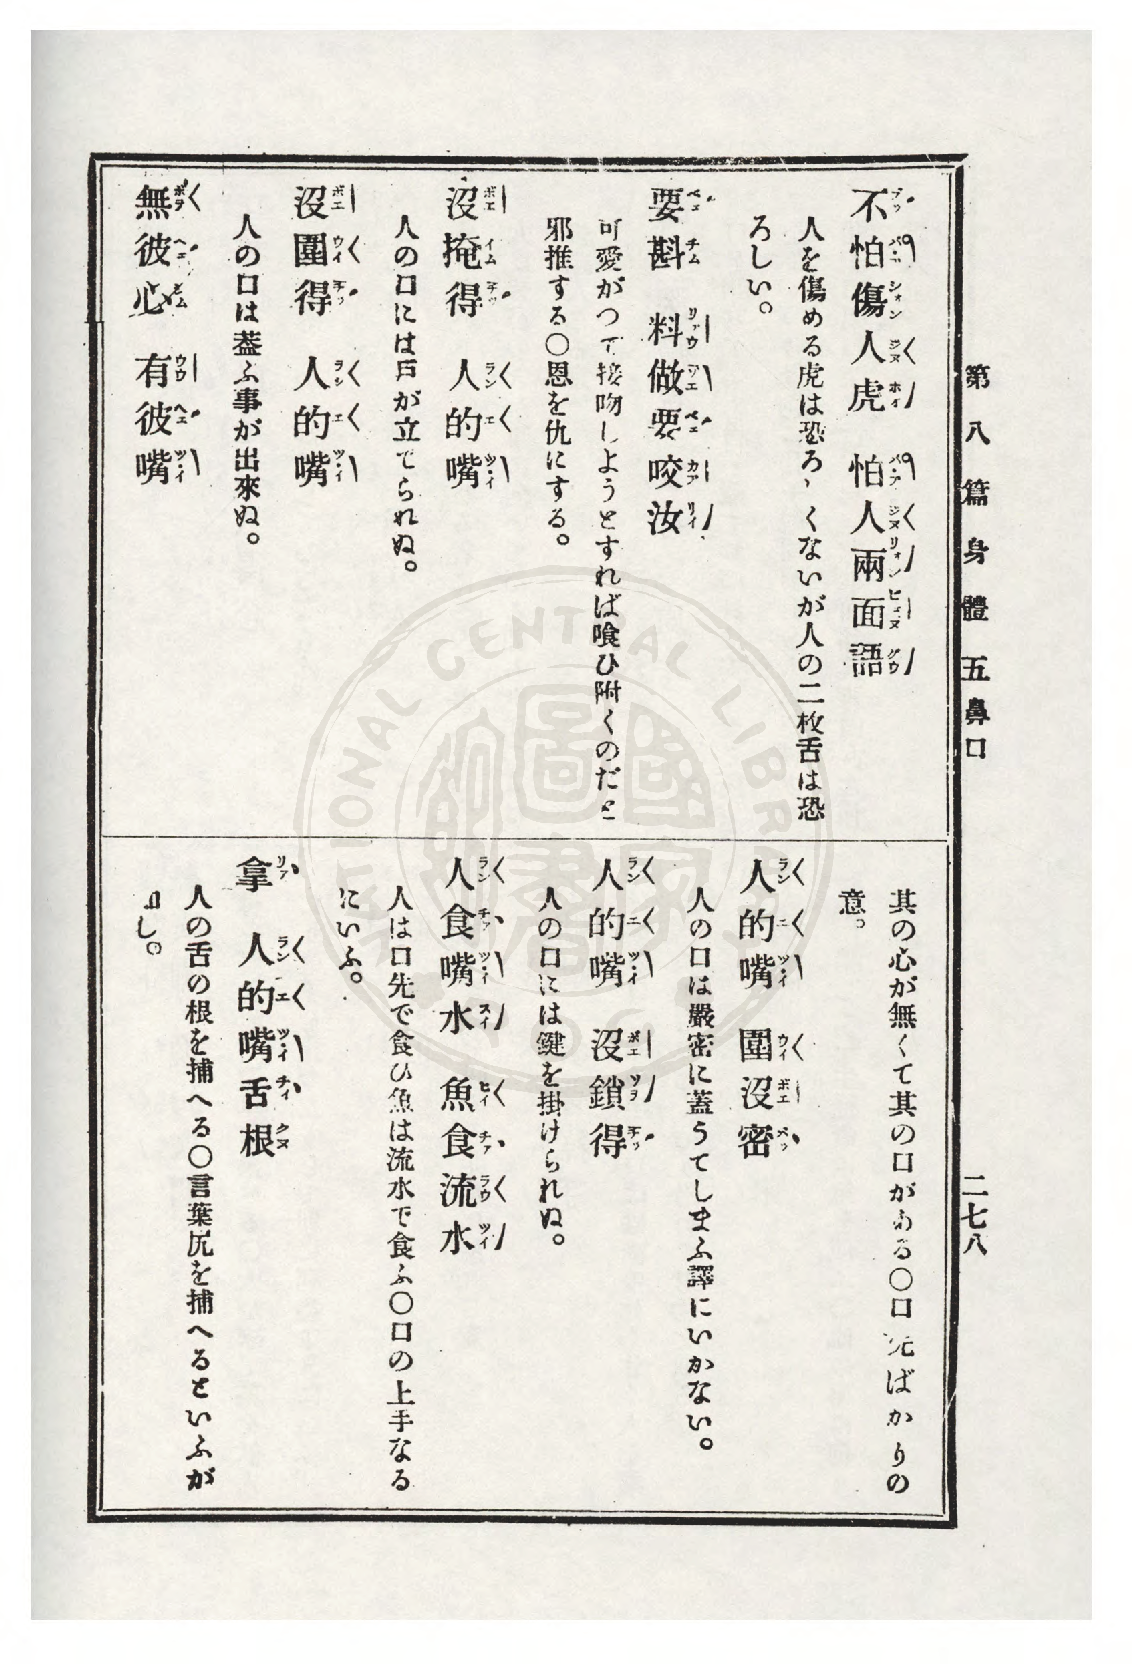 第八篇 身體 五 鼻口
二七八
不怕傷人虎 怕人兩面語
人を傷める虎は恐ろしくないが人の二枚舌は恐
ろしい。
要斟 料做要咬汝
可愛がつて接吻しようとすれば喰ひ附くのだと
邪推する〇恩を仇にする。
沒掩得 人的嘴
人の口には戸が立てられぬ。
沒圍得 人的嘴
人の口は蓋ふ事が出來ぬ。
無彼心 有彼嘴
其の心が無くて其の口がある〇口先ばかりの
意。
人的嘴 圍沒密
人の口は嚴密に蓋うてしまふ譯にいかない。
人的嘴 沒鎖得
人の口には鍵を掛けられぬ。
人食嘴水 魚食流水
人は口先で食ひ魚は流水で食ふ〇口の上手なる
にいふ。
拿 人的嘴舌根
人の舌の根を捕へる〇言葉尻を捕へるといふが
如し。
NATIONAL CENTRAL LIBRARY